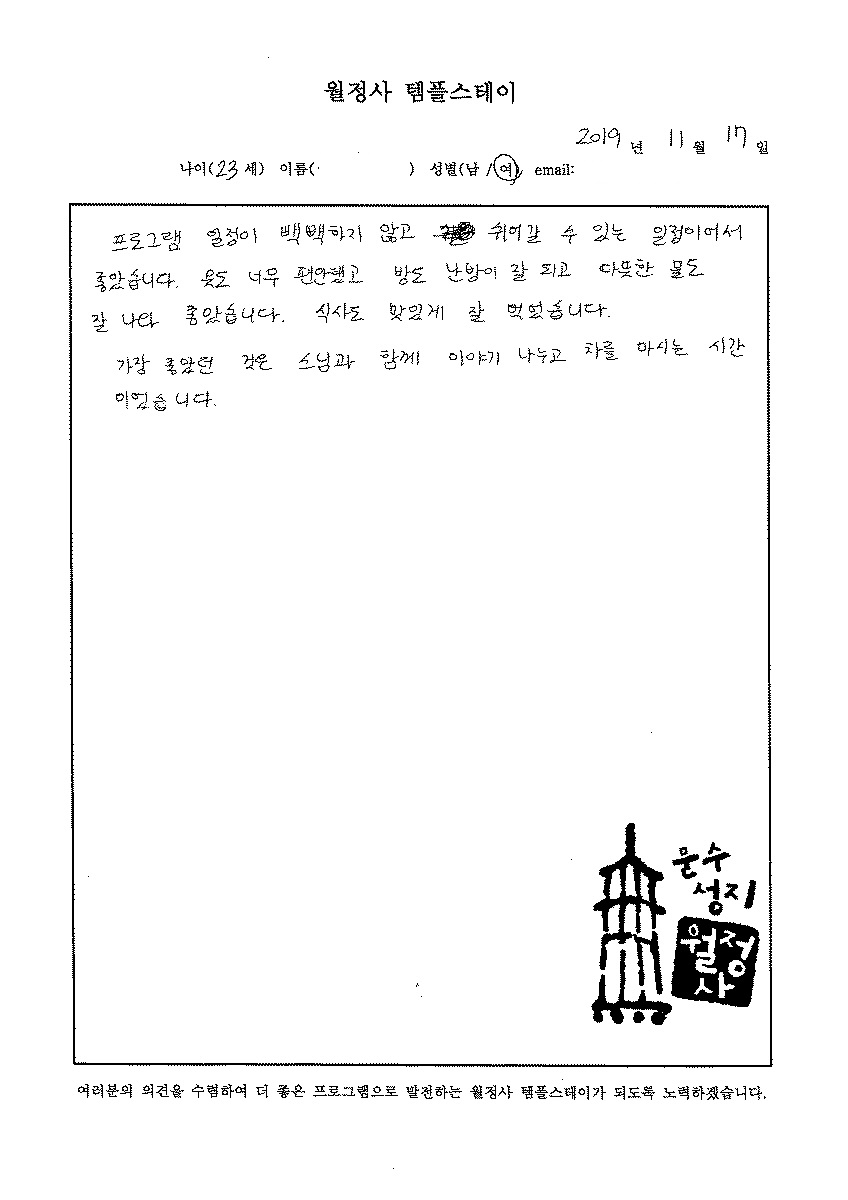 월정사 템플스테이
2019 년 11 월 17 일
나이(23세) 이름( ) 성별(남 /여) email:
프로그램 일정이 빽빽하지 않고 쉬어갈 수 있는 일정이어서
좋았습니다. 옷도 너무 편안했고 방도 난방이 잘 되고 따뜻한 물도
잘 나와 좋았습니다. 식사도 맛있게 잘 먹었습니다.
가장 좋았던 것은 스님과 함께 이야기 나누고 차를 마시는 시간
이었습니다.
문수
성지
월정
사
여러분의 의견을 수렴하여 더 좋은 프로그램으로 발전하는 월정사 템플스테이가 되도록 노력하겠습니다.